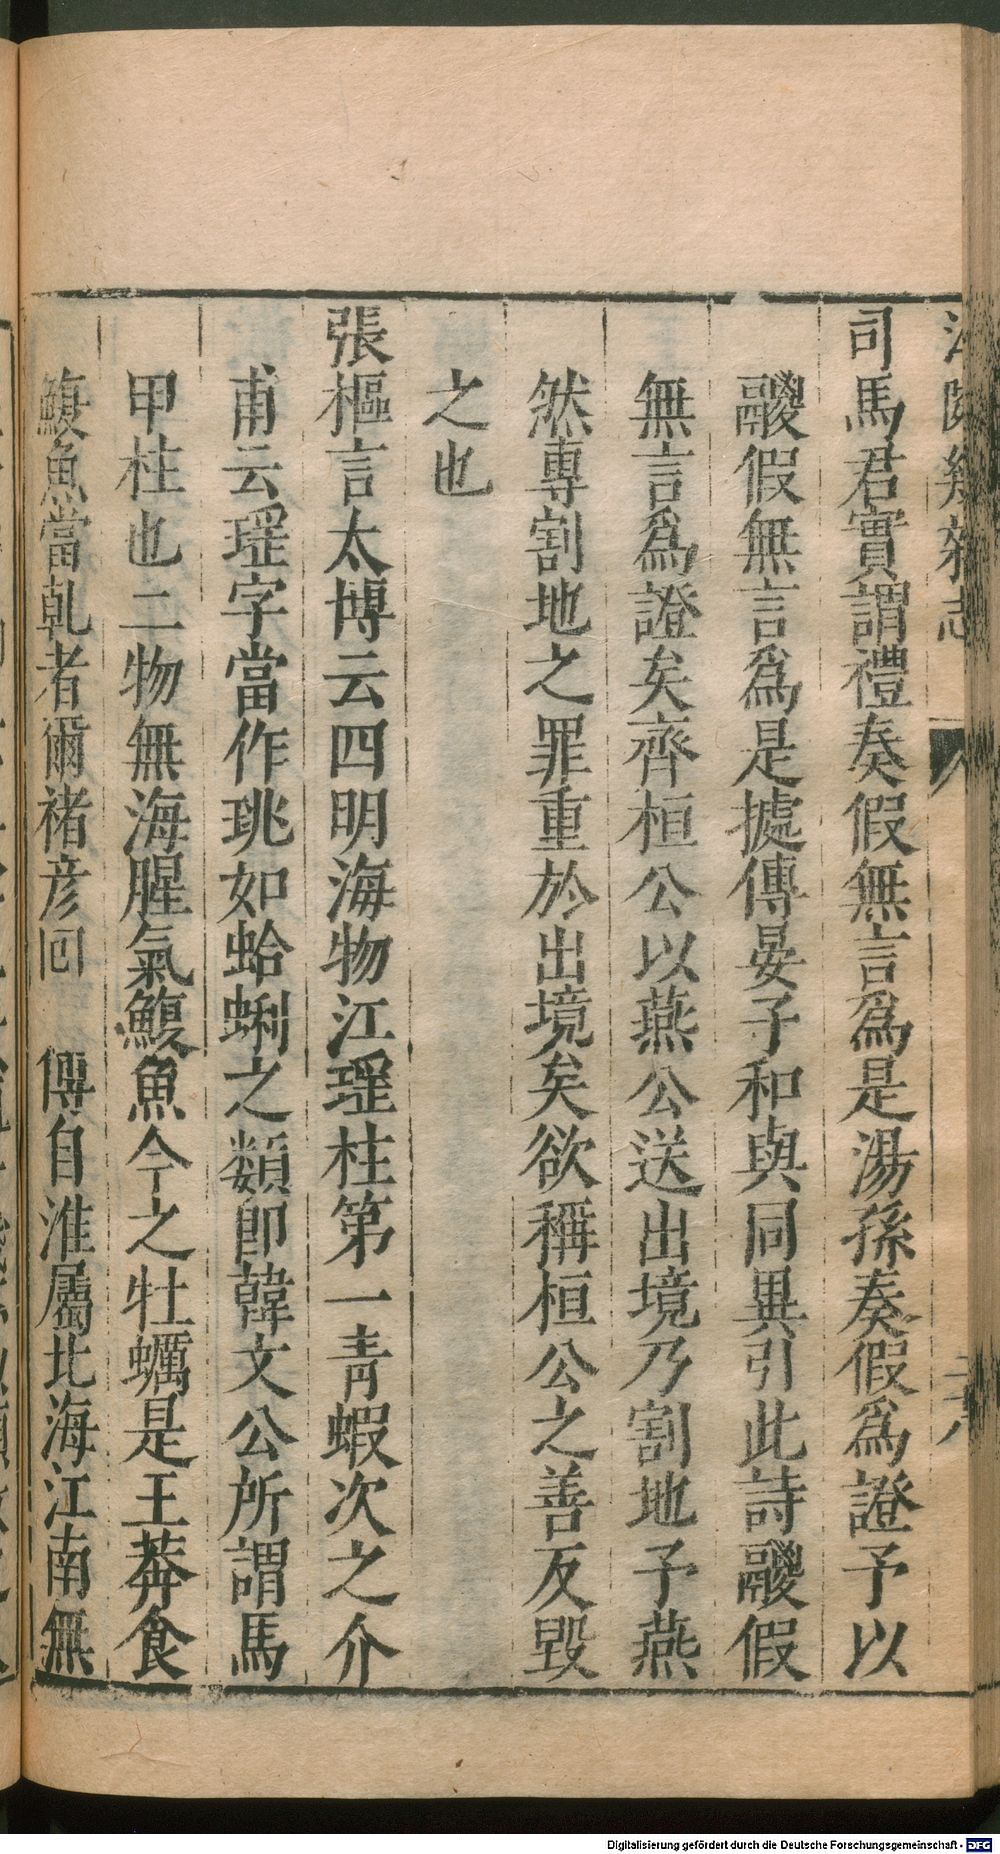 司馬君實謂禮奏假無言爲是湯孫奏假爲證予以
鬷假無言爲是據傳晏子和與同異引此詩鬷假
無言爲證矣齊桓公以燕公送出境乃割地予燕
然專割地之罪重於出境矣欲稱桓公之善反毀
之也
張樞言太博云四明海物江瑶柱第一青蝦次之介
甫云瑶字當作珧如蛤蜊之類卽韓文公所謂馬
甲柱也二物無海腥氣鰒魚今之牡蠣是王莽食
鰒魚當乹者爾褚彥囘 傳自淮屬北海江南無
Digitalisierung gefördert durch die Deutsche Forschungsgemeinschaft - DFG